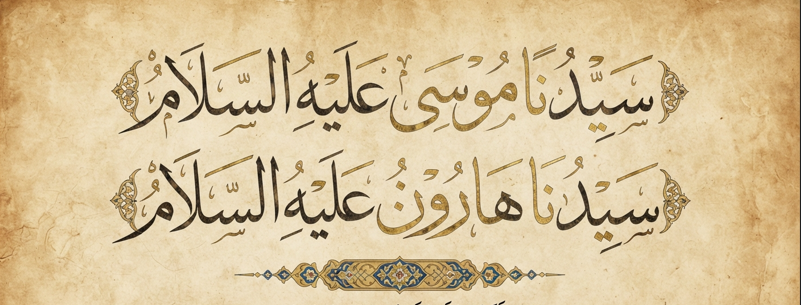 سَيِّدُنَا مُوْسَى عَلَيْهِ السَّلَامُ
سَيِّدُنَا هَارُوْنُ عَلَيْهِ السَّلَامُ